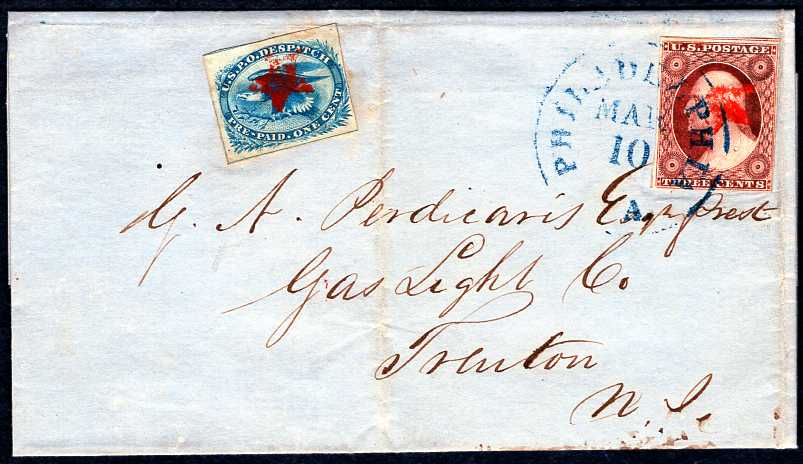 U.S.P.O. DESPATCH
PRE-PAID. ONE CENT
U.S. POSTAGE
THREE CENTS
PHILADEL
MAR
10
PHI
A
G. A. Perdicaris Esqr Prest
Gas Light Co.
Trenton
N. J.